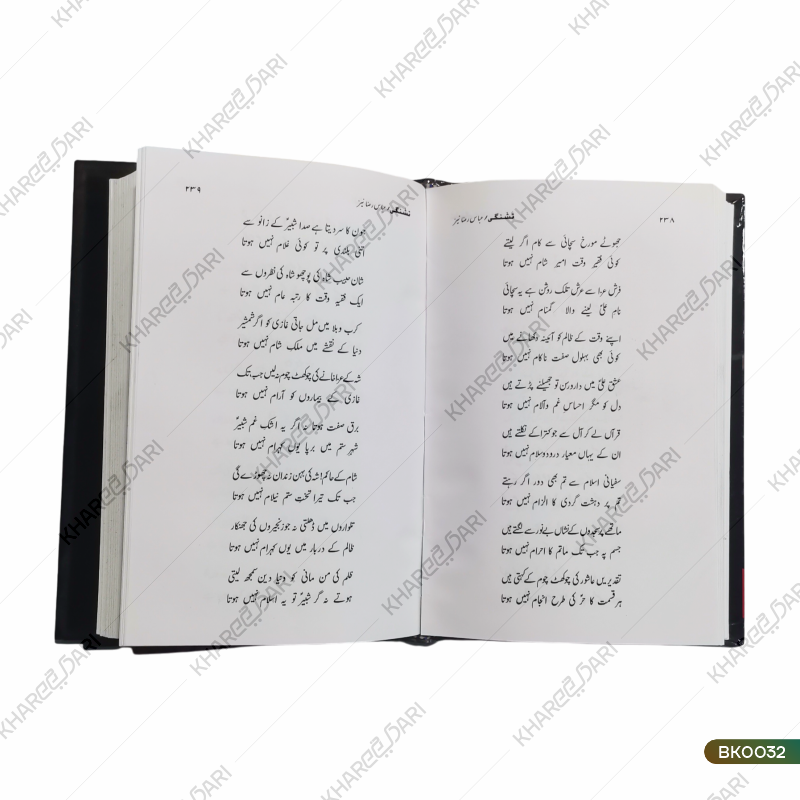 ۲۳۸
تشنگی / عباس رضا نیر
جھوٹے مورخ سچائی سے کام اگر لیتے
کوئی فقیر وقت امیر شام نہیں ہوتا
فرش عزا سے عرش تلک روشن ہے یہ سچائی
نام علیؑ لینے والا گمنام نہیں ہوتا
اپنے وقت کے ظالم کو آئینہ دکھانے میں
کوئی بھی بہلول صفت ناکام نہیں ہوتا
عشق علیؑ میں دار و رسن تو جھیلنے پڑتے ہیں
دل کو مگر احساس غم و آلام نہیں ہوتا
قرآں لے کر آل سے جو کترا کے نکلتے ہیں
ان کے یہاں معیار درود و سلام نہیں ہوتا
سفیانی اسلام سے تم بھی دور اگر رہتے
تم پر دہشت گردی کا الزام نہیں ہوتا
ماتھے پر سجدوں کے نشاں بے نور سے لگتے ہیں
جسم پہ جب تک ماتم کا احرام نہیں ہوتا
تقدیریں عاشور کی چوکھٹ چوم کے کہتی ہیں
ہر قسمت کا حرؑ کی طرح انجام نہیں ہوتا
۲۳۹
تشنگی / عباس رضا نیر
جون کا سر دیتا ہے صدا شبیرؑ کے زانو سے
اتنی بلندی پر تو کوئی غلام نہیں ہوتا
شان حبیب شاہ کی پوچھو شاہ کی نظروں سے
ایک فقیہ وقت کا رتبہ عام نہیں ہوتا
کرب و بلا میں مل جاتی غازی کو اگر شمشیر
دنیا کے نقشے میں ملک شام نہیں ہوتا
شہ کے عزا خانے کی چوکھٹ چوم نہ لیں جب تک
غازی کے بیماروں کو آرام نہیں ہوتا
برق صفت ہوتا نہ اگر یہ اشک غم شبیرؑ
شہر ستم میں برپا یوں کہرام نہیں ہوتا
شام کے حاکم! شہ کی بہن زندان نہ چھوڑے گی
جب تک تیرا تخت ستم نیلام نہیں ہوتا
تلواروں میں ڈھلتی نہ جو زنجیروں کی جھنکار
ظالم کے دربار میں یوں کہرام نہیں ہوتا
ظلم کی من مانی کو دنیا دین سمجھ لیتی
ہوتے نہ گر شبیرؑ تو یہ اسلام نہیں ہوتا
BK0032